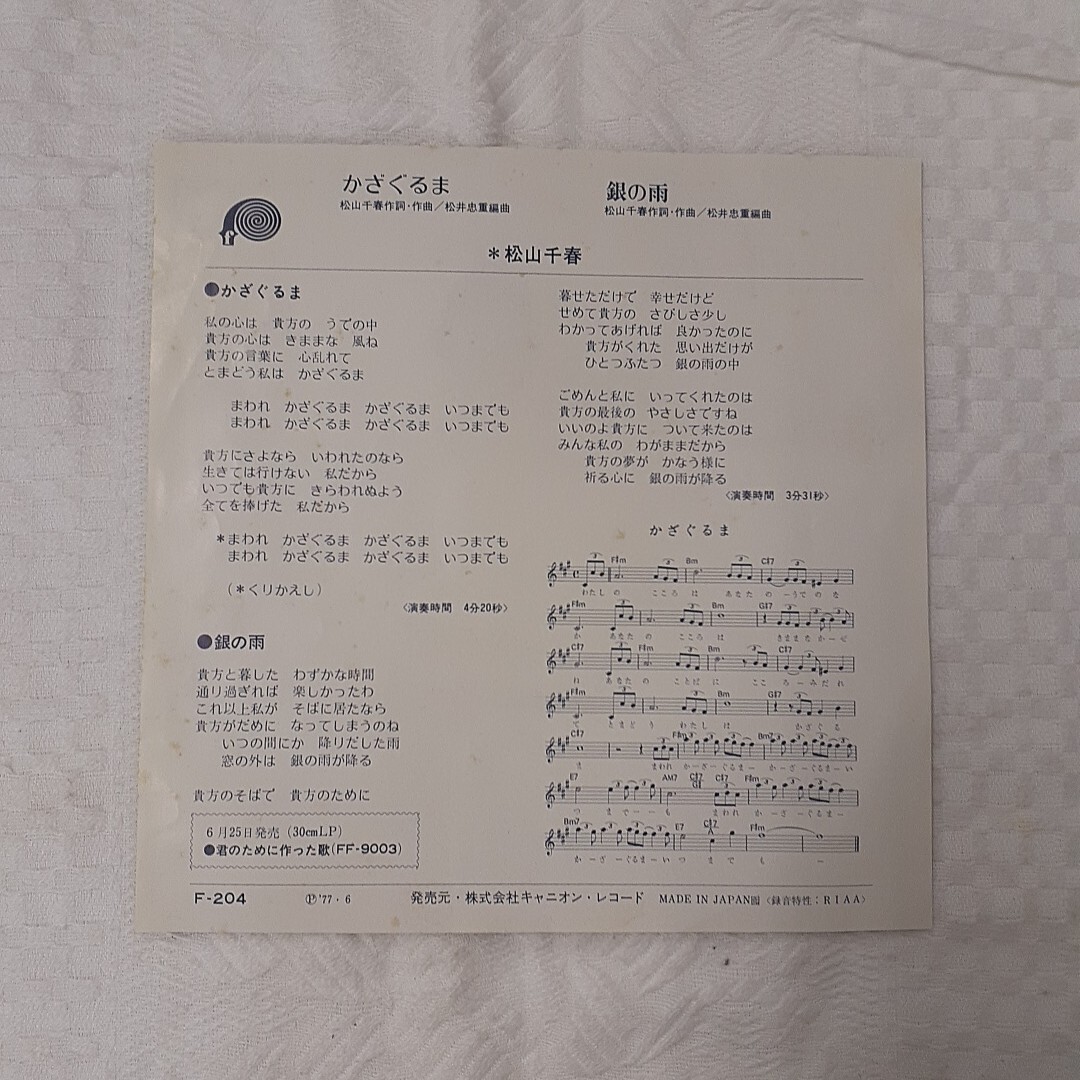 かざぐるま
松山千春作詞・作曲／松井忠重編曲
銀の雨
松山千春作詞・作曲／松井忠重編曲
＊松山千春
●かざぐるま
私の心は　貴方の　うでの中
貴方の心は　きままな　風ね
貴方の言葉に　心乱れて
とまどう私は　かざぐるま
まわれ　かざぐるま　かざぐるま　いつまでも
まわれ　かざぐるま　かざぐるま　いつまでも
貴方にさよなら　いわれたのなら
生きては行けない　私だから
いつでも貴方に　きらわれぬよう
全てを捧げた　私だから
＊まわれ　かざぐるま　かざぐるま　いつまでも
まわれ　かざぐるま　かざぐるま　いつまでも
（＊くりかえし）
〈演奏時間　4分20秒〉
●銀の雨
貴方と暮した　わずかな時間
通り過ぎれば　楽しかったわ
これ以上私が　そばに居たなら
貴方がだめに　なってしまうのね
いつの間にか　降りだした雨
窓の外は　銀の雨が降る
貴方のそばで　貴方のために
暮せただけで　幸せだけど
せめて貴方の　さびしさ少し
わかってあげれば　良かったのに
貴方がくれた　思い出だけが
ひとつふたつ　銀の雨の中
ごめんと私に　いってくれたのは
貴方の最後の　やさしさですね
いいのよ貴方に　ついて来たのは
みんな私の　わがままだから
貴方の夢が　かなう様に
祈る心に　銀の雨が降る
〈演奏時間　3分31秒〉
かざぐるま
F♯m Bm C♯7
わたしの こころ は あなた の ーうでのな
F♯m Bm G♯7
か あなた の こころ は きままなかーぜ
C♯7 F♯m Bm C♯7
ね あなた の ことば に こころーみだれ
F♯m Bm G♯7
て とまど う わたし は かざぐる
C♯7 F♯m Bm7
ま まわれ かーざーぐるまー かーざーぐるまーい
E7 AM7 C♯7 G♯ C♯7 F♯m
つ までーーも まわれ かーざーぐるまー
Bm7 E7 C♯7 F♯m
かーざーぐるまーいつ までも ー
6月25日発売（30cmLP）
●君のために作った歌（FF-9003）
F-204
Ⓟ '77・6
発売元・株式会社キャニオン・レコード
MADE IN JAPAN 〈録音特性：RIAA〉